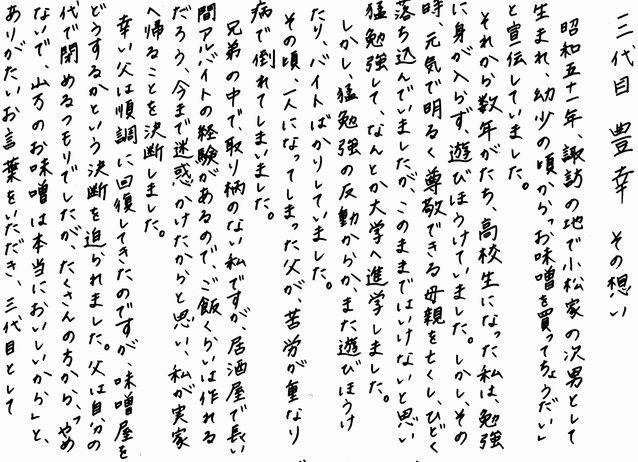 三代目 豊幸 その想い
昭和五十一年、諏訪の地で小松家の次男として
生まれ、幼少の頃から「お味噌を買ってちょうだい」
と宣伝していました。
それから数年がたち、高校生になった私は、勉強
に身が入らず、遊びほうけていました。しかし、その
時、元気で明るく尊敬できる母親を亡くし、ひどく
落ち込んでいましたが、このままではいけないと思い
猛勉強して、なんとか大学へ進学しました。
しかし、猛勉強の反動からか、また遊びほうけ
たり、バイトばかりしていました。
その頃、一人になってしまった父が、苦労が重なり
病で倒れてしまいました。
兄弟の中で、取り柄のない私ですが、居酒屋で長い
間アルバイトの経験があるので、ご飯くらいは作れる
だろう、今まで迷惑かけたからと思い、私が実家
へ帰ることを決断しました。
幸い父は順調に回復してきたのですが、味噌屋を
どうするかという決断を迫られました。父は自分の
代で閉めるつモリでしたが、たくさんの方から、「やめ
ないで、山万のお味噌は本当においしいから」と、
ありがたいお言葉をいただき、三代目として